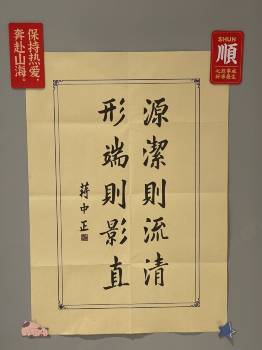 源潔則流清
形端則影直
蔣中正
保持热爱，
奔赴山海。
SHUN
順